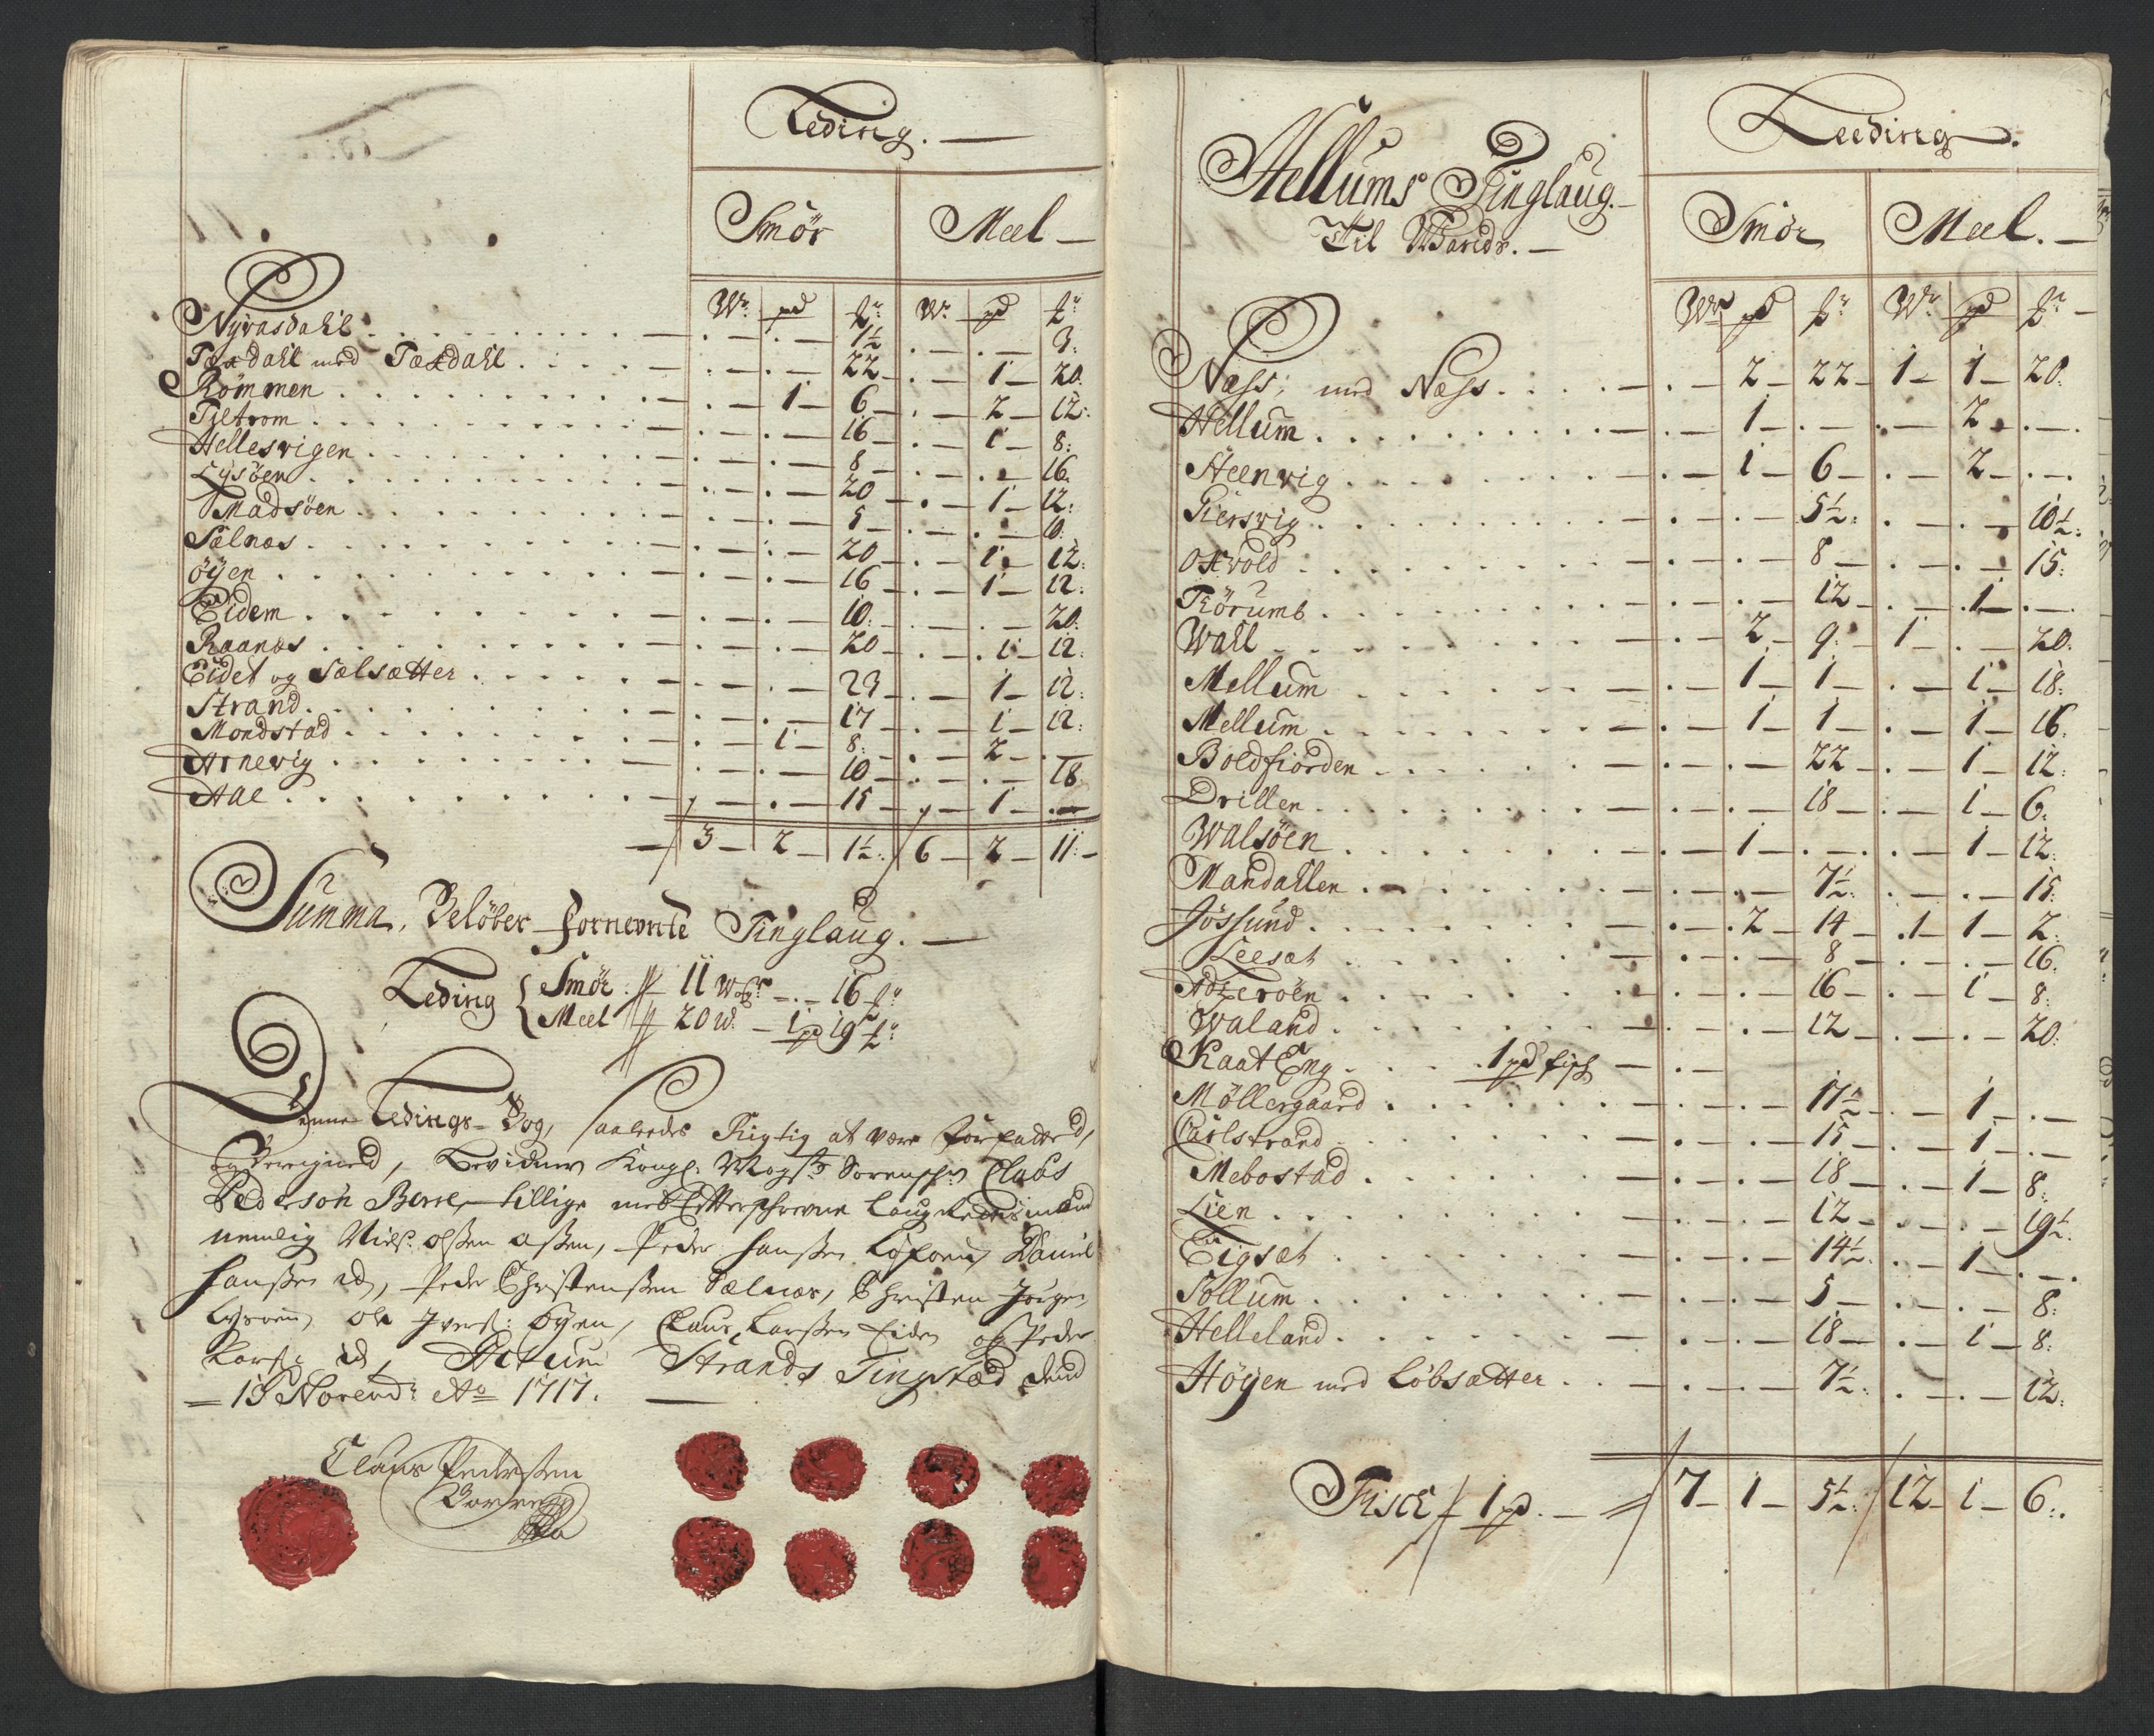 Leding.
Smör Meel
Wr pd £r W. pd £r
Nÿvasdahl . — . — 1½ . — . — 3:
Taxdahl med Taxdahl . — . — 22 — . — 1 — 20.
Römmen . — 1 — 6 — . — 2 — 12:
Tiltrom . — . — 16 — . — 1 — 8:
Hellesvigen . — . — 8 — . — . — 16.
Lÿsöen . — . — 20 — . — 1 — 12:
Madsöen . — . — 5 — . — . — 10:
Sælnæs . — . — 20 — . — 1 — 12:
öÿen . — . — 16 — . — 1 — 12:
Eidem . — . — 10: . — . — 20.
Raanæs . — . — 20 — . — 1 — 12:
Eidet og Sælsætter . — . — 23 — . — 1 — 12:
Strand . — . — 17 — . — 1 — 12:
Mondstad . — 1 — 8: . — 2 — . —
Arnevig . — . — 10 — . — . — 18.
Aae . — . — 15 — . — 1 — . —
3 — 2 — 1½. 6 — 2 — 11: —
Summa, Belöber fornevnte Tinglaug. —
Leding { Smör 11 W — . — 16 £r
Meel 20 W. — 1 pd 19½ £r
Denne Ledings-Bog, saaledes Rigtig at være forfatted,
Kongl: Mayts Sorenschr Claus
Pedersön Berre, tillige med Efterschrevne Laugrettismænd
nemlig Niels olssen Peder Hanssen Daniel
Hanssen ib, Peder Christenssen Sælnæs, Christen
Lÿsöen, ole Ivers: Öÿen, Claus Larssen Eidem og Peder
Lars: ib, Actum Strands Tingstæd dend
— 15 Novembr Ao 1717. —
Claus Pederssen
Hellums Tinglaug. —
Til Wands. —
Leeding.
Smör Meel. —
Wr pd £r Wr pd £r —
Næss, med Næss . — 2 — 22 — 1 — 1 — 20:
Hellum . — 1 — . — . — 2 — . —
Steenvig . — 1 — 6 — . — 2 — . —
Giersvig . — . — 5½: . — . — 10½:
Oxvold . — . — 8 — . — . — 15:
Tiörumb . — . — 12 — . — 1 — . —
Wall . — 2 — 9: 1 — . — 20:
Mellum . — 1 — 1 — . — 1 — 18:
Mellum . — 1 — 1 — . — 1 — 16.
Boldfiorden . — . — 22 — . — 1 — 12:
Drillen . — . — 18 — . — 1 — 6:
Walsöen . — 1 — . — . — 1 — 12:
Mandahlen . — . — 7½: . — . — 15:
Jössund . — 2 — 14 — 1 — 1 — 2:
Leesæt . — . — 8 — . — . — 16.
Adzeröen . — . — 16 — . — 1 — 8:
Waland . — . — 12 — . — . — 20:
Kaat Eng . . . 1 pd fisch — . —
Möllergaard . — . — 17½ — . — 1 — . —
Carlstrand . — . — 15 — . — 1 — . —
Mebostad . — . — 18 — . — 1 — 8:
Lien . — . — 12 — . — . — 19½.
Eigsæt . — . — 14½. . — 1 — . —
Sollum . — . — 5 — . — . — 8:
Helleland . — . — 18 — . — 1 — 8:
Höÿen med Löbsætter . — . — 7½: . — . — 12:
Fisch 1 pd. — 7 — 1 — 5½: 12 — 1 — 6:.